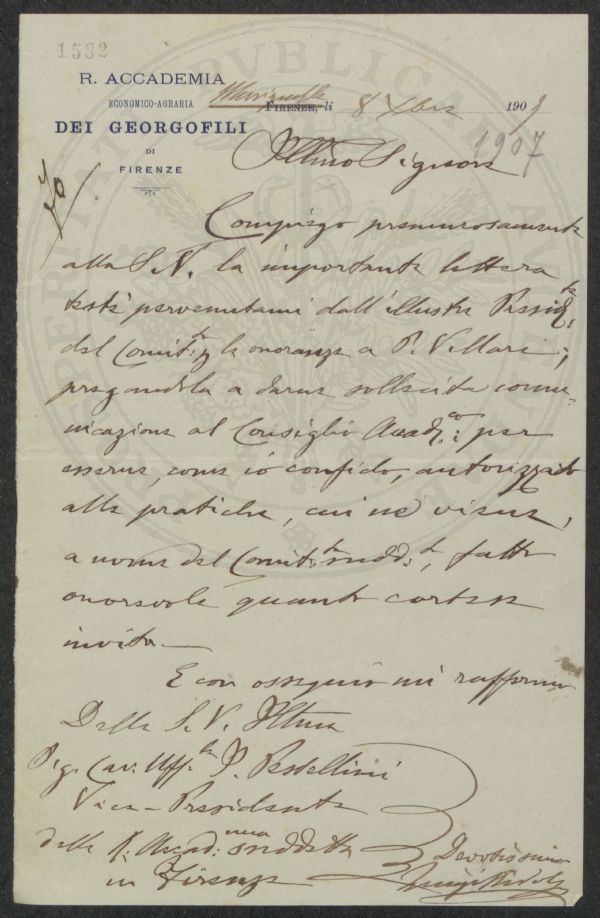 1582
R. ACCADEMIA
ECONOMICO-AGRARIA
DEI GEORGOFILI
DI
FIRENZE
Marignolle
FIRENZE, li 8 Xbre 1907
1907
Illmo Signore
Compiego premurosamente
alla S. V. la importante lettera
testè pervenutami dall'illustre Presid.te
del Comit.to p. le onoranze a P. Villari;
pregandola a darne sollecita comu-
nicazione al Consiglio Accad.co per
esserne, come io confido, autorizzato
alle pratiche, cui ne viene,
a nome del Comit.to sudd.to, fatto
onorevole quanto cortese
invito.—
E con ossequio mi raffermo
Della S. V. Illma
Sig. Cav. Uff.le P. Pestellini
Vice-Presidente
della R. Accad.mia suddetta
in Firenze
Devotissimo
Luigi Ridolfi